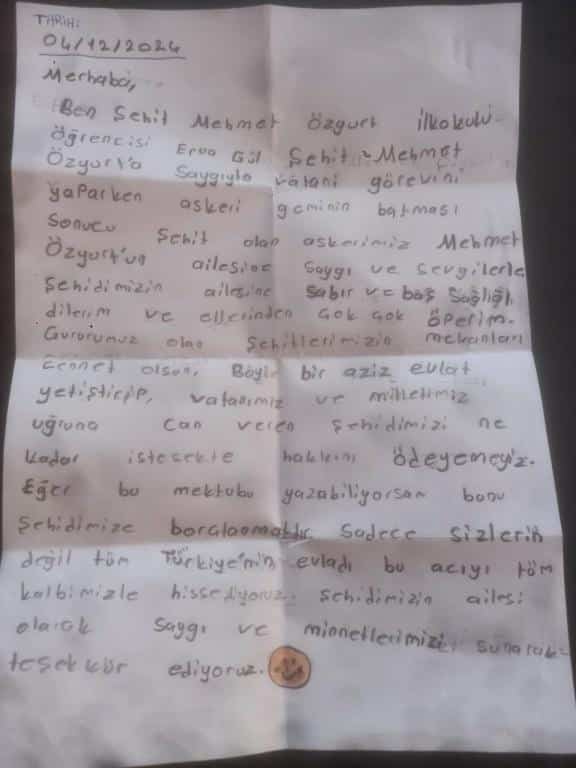 TARİH:
04/12/2024
Merhaba,
Ben Şehit Mehmet Özgurt ilkokulu
Öğrencisi Erva Gül Şehit Mehmet
Özyurt'a Saygıyla vatani görevini
yaparken askeri geminin batması
Sonucu Şehit olan askerimiz Mehmet
Özyurt'un ailesine Saygı ve Sevgilerle
Şehidimizin ailesine Sabır ve baş Sağlığı
dilerim ve ellerinden çok çok öperim.
Gururumuz olan Şehitlerimizin mekanları
cennet olsun, Böyle bir aziz evlat
yetiştirip, vatanımız ve milletimiz
uğruna can veren Şehidimizi ne
kadar istesekte hakkını ödeyemeyiz.
Eğer bu mektubu yazabiliyorsam bunu
Şehidimize Sadece sizlerin
değil tüm Türkiye'min evladı bu acıyı tüm
kalbimizle hissediyoruz. Şehidimizin ailesi
olarak saygı ve minnetlerimizi sunarak
teşekkür ediyoruz.